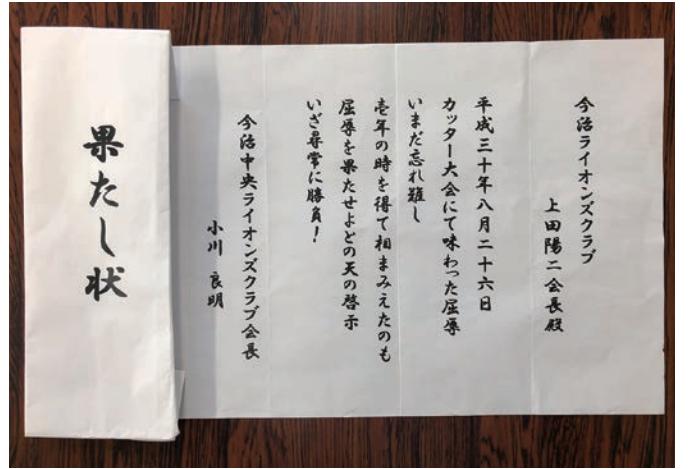 今治ライオンズクラブ
上田陽二会長殿
平成三十年八月二十六日
カッター大会にて味わった屈辱
いまだ忘れ難し
壱年の時を得て相まみえたのも
屈辱を果たせよとの天の啓示
いざ尋常に勝負！
今治中央ライオンズクラブ会長
小川 良明
果たし状